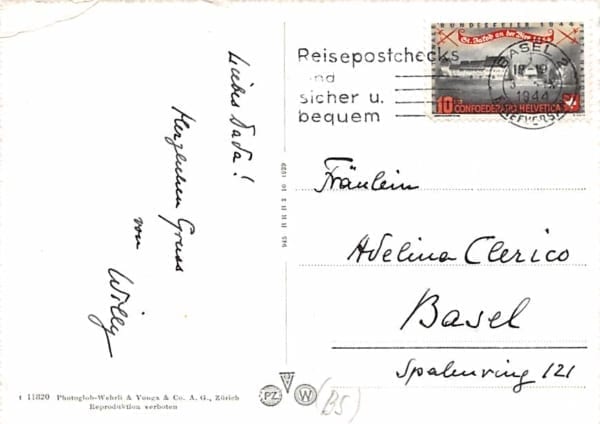 Liebes Dada!
Herzlichen Gruss
von
Willy
Reisepostchecks
sind
sicher u.
bequem
BUNDESFEIER 1944
St. Jakob an der Birs 1444
10
CONFOEDERATIO HELVETICA
BASEL 2
1944
BRIEFVERSAND
Fräulein
Adelina Clerico
Basel
Spalenring 121
t 11820 Photoglob-Wehrli & Vouga & Co. A. G., Zürich
Reproduktion verboten
PZ W
(BS)